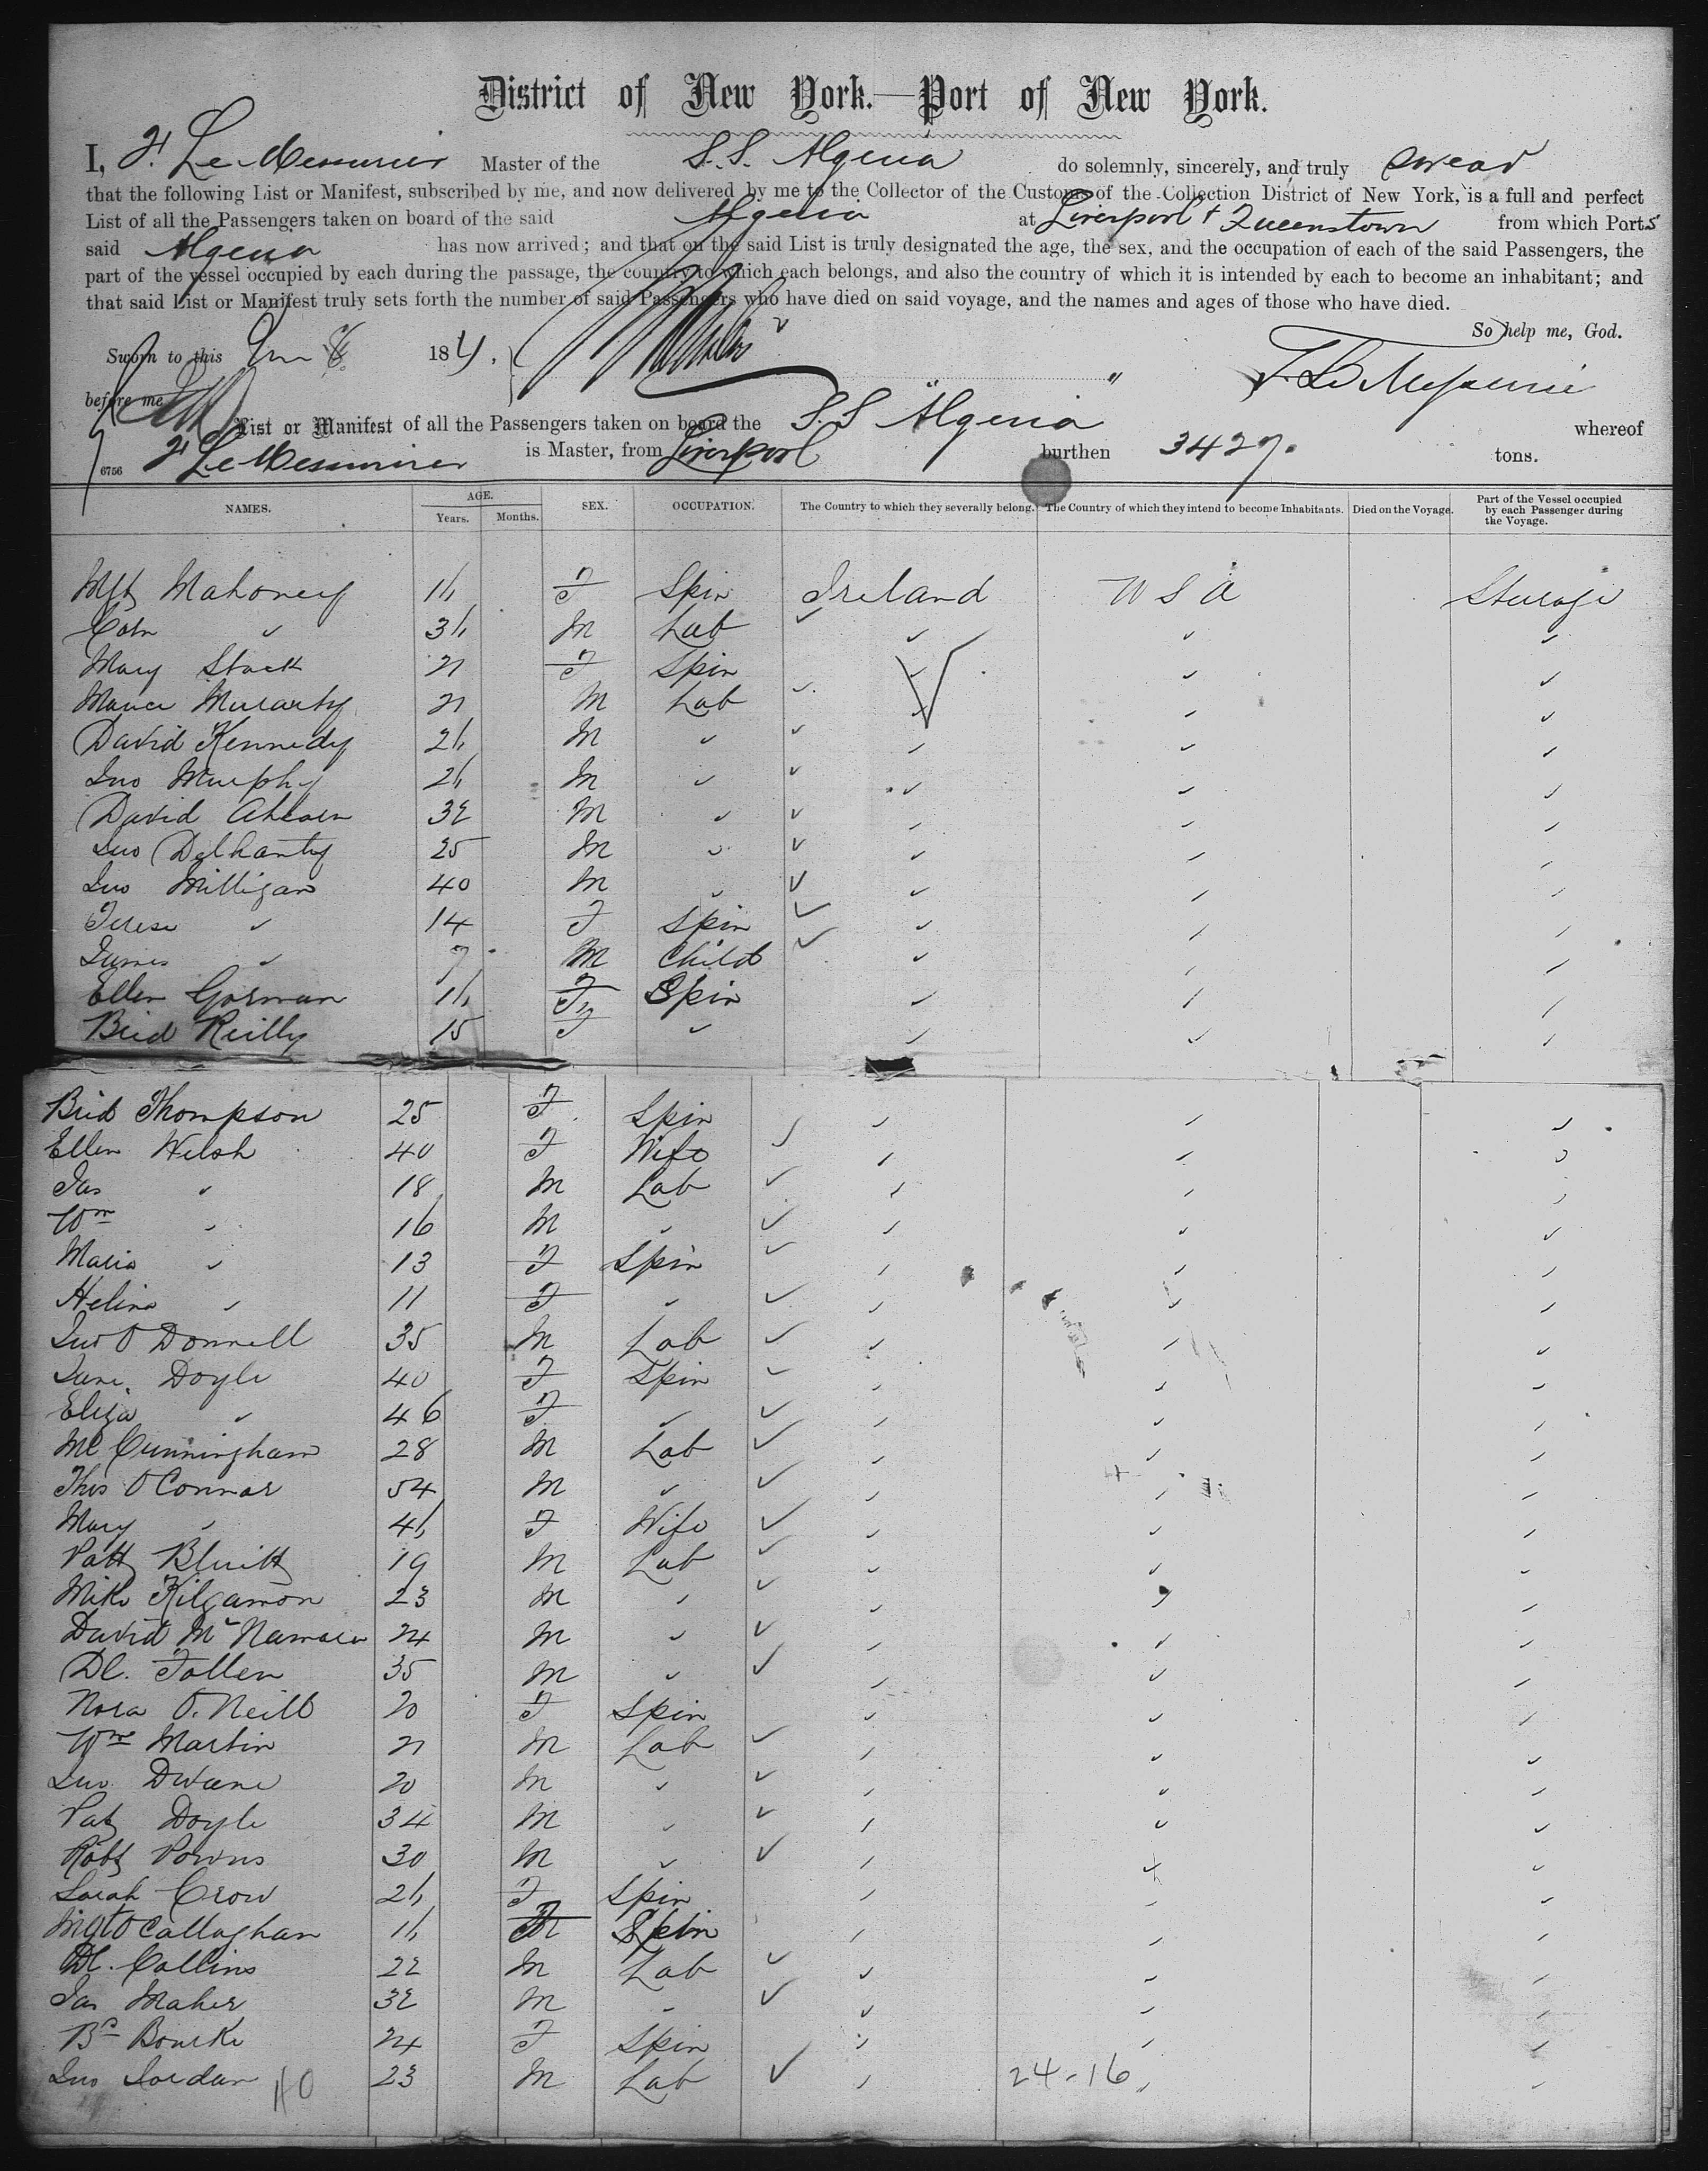 District of New York.—Port of New York.
I, F. Le Messurier Master of the S.S. Algeria do solemnly, sincerely, and truly swear
that the following List or Manifest, subscribed by me, and now delivered by me to the Collector of the Customs of the Collection District of New York, is a full and perfect
List of all the Passengers taken on board of the said Algeria at Liverpool + Queenstown from which Ports
said Algeria has now arrived; and that on the said List is truly designated the age, the sex, and the occupation of each of the said Passengers, the
part of the vessel occupied by each during the passage, the country to which each belongs, and also the country of which it is intended by each to become an inhabitant; and
that said List or Manifest truly sets forth the number of said Passengers who have died on said voyage, and the names and ages of those who have died.
So help me, God.
Sworn to this 18
before me
List or Manifest of all the Passengers taken on board the S.S Algeria whereof
6756 F Le Messurier is Master, from Liverpool burthen 3427. tons.
NAMES. AGE. SEX. OCCUPATION. The Country to which they severally belong. The Country of which they intend to become Inhabitants. Died on the Voyage. Part of the Vessel occupied by each Passenger during the Voyage.
Years. Months.
Mgt Mahoney F Spin Ireland U S A Steerage
Corn " M Lab
Mary Stack 21 F Spin
Maurice Muriarty 21 M Lab
David Kennedy M "
Jno Murphy M "
David Ahearn 32 M "
Jno Delhanty 25 M "
Jno Milligan 40 M "
Terese " 14 F Spin
James " 7 M Child
Ellen Gorman F Spin
Brid Reilly 15 F "
Brid Thompson 25 F Spin
Ellen Welsh 40 F Wife
Jas " 18 M Lab
Wm " 16 M "
Maria " 13 F Spin
Helina " 11 F "
Jno O Donnell 35 M Lab
Jane Doyle 40 F Spin
Eliza " 46 F "
Ml Cunningham 28 M Lab
Thos O Connor 54 M "
Mary " F Wife
Patt Bluitt 19 M Lab
Mike Kilgamon 23 M "
David McNamara 24 M "
Dl. Fallen 35 M "
Nora O. Neill 20 F Spin
Wm Martin 21 M Lab
Jno Dwane 20 M "
Pat Doyle 34 M "
Robt Powns 30 M "
Sarah Crow F Spin
Mgt O Callaghan F Spin
Dl. Collins 22 M Lab
Jas Maher 32 M "
Bd Bourke 24 F Spin
Jno Jordan 23 M Lab 24-16
40